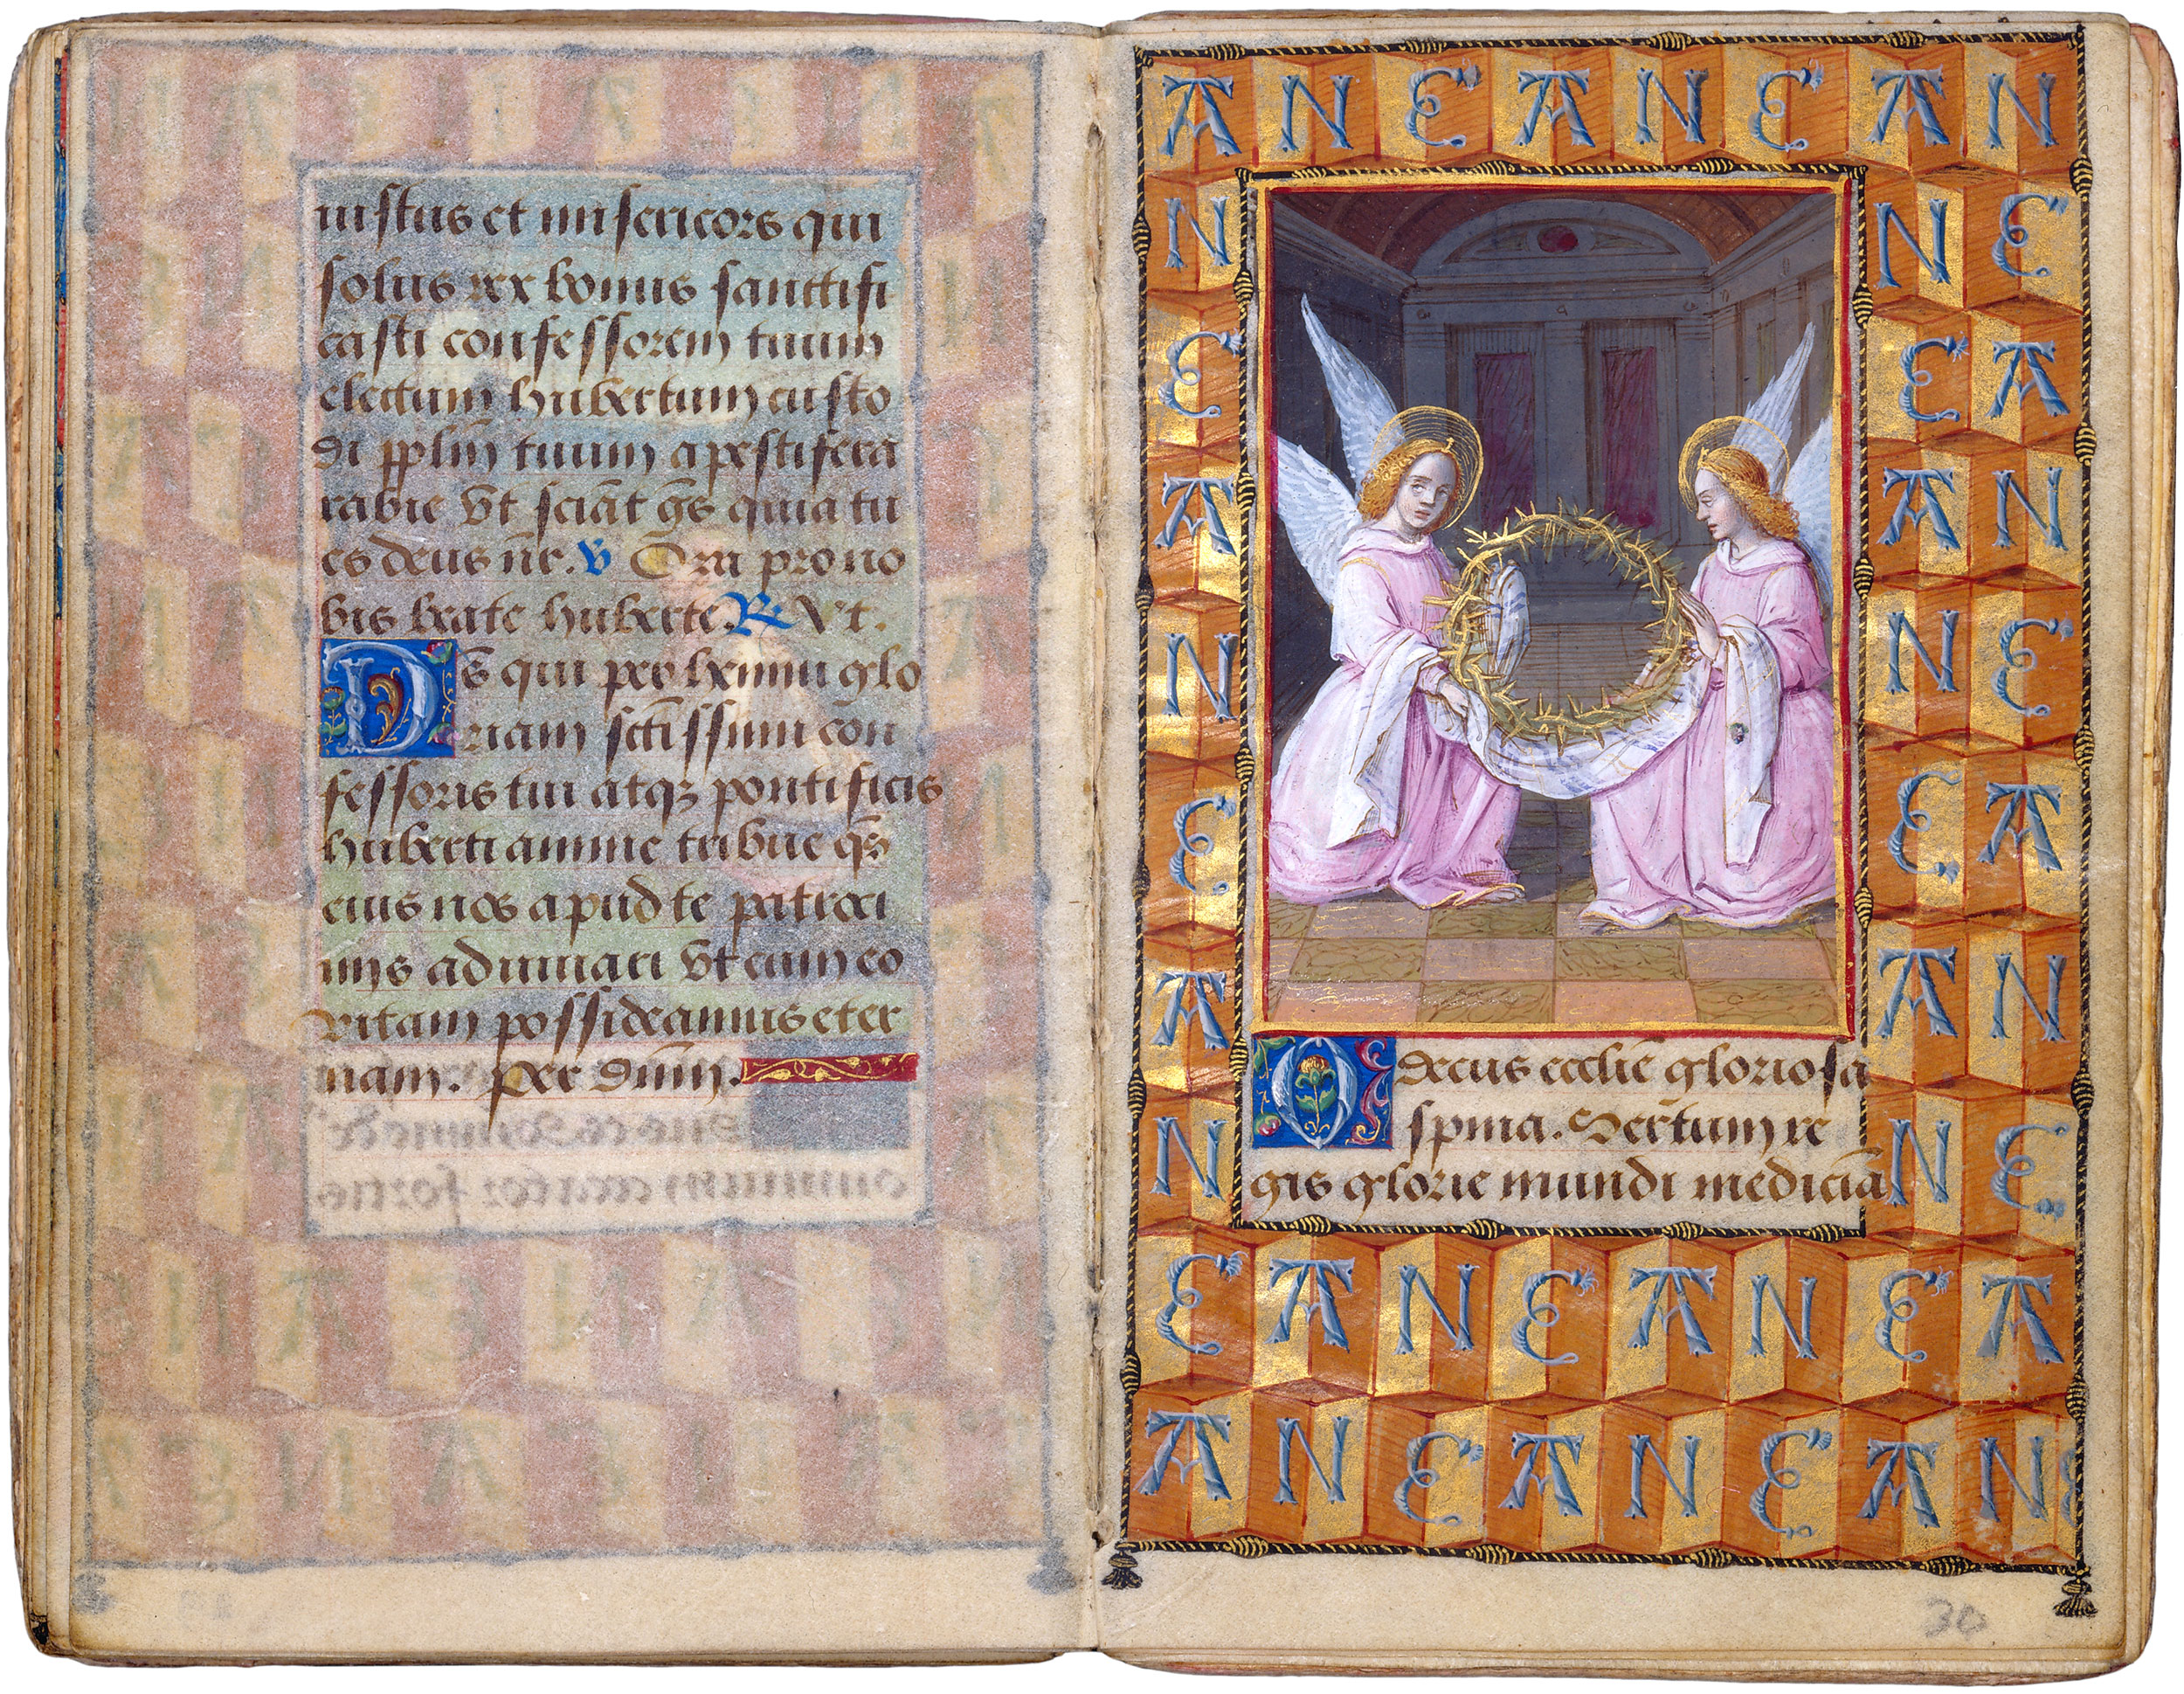 iustus et misericors qui
solus rex bonus sanctifi
casti confessorem tuum
electum hubertum custo
di pplm̄ tuum a pestifera
rabie vt sciāt gēs quia tu
es deus nr̄. V Ora pro no
bis beate huberte. R Vt.
Ds̄ qui perhenni glo
riam sctissimi cōn
fessoris tui atqꝫ pontificis
huberti anime tribue qs̄
eius nos apud te patroci
niis adiuuari vt cum eo
vitam possideamus eter
nam. Per dnm̄.
A N E A N E A N
N
E
A
N
E
A
N
O decus ecclīe gloriosa
spina. Sertum re
gis glorie mundi medicīa
N E
E A
A N
N E
E A
A N
N E
E A N E A N E A
A N E A N E A N E
30